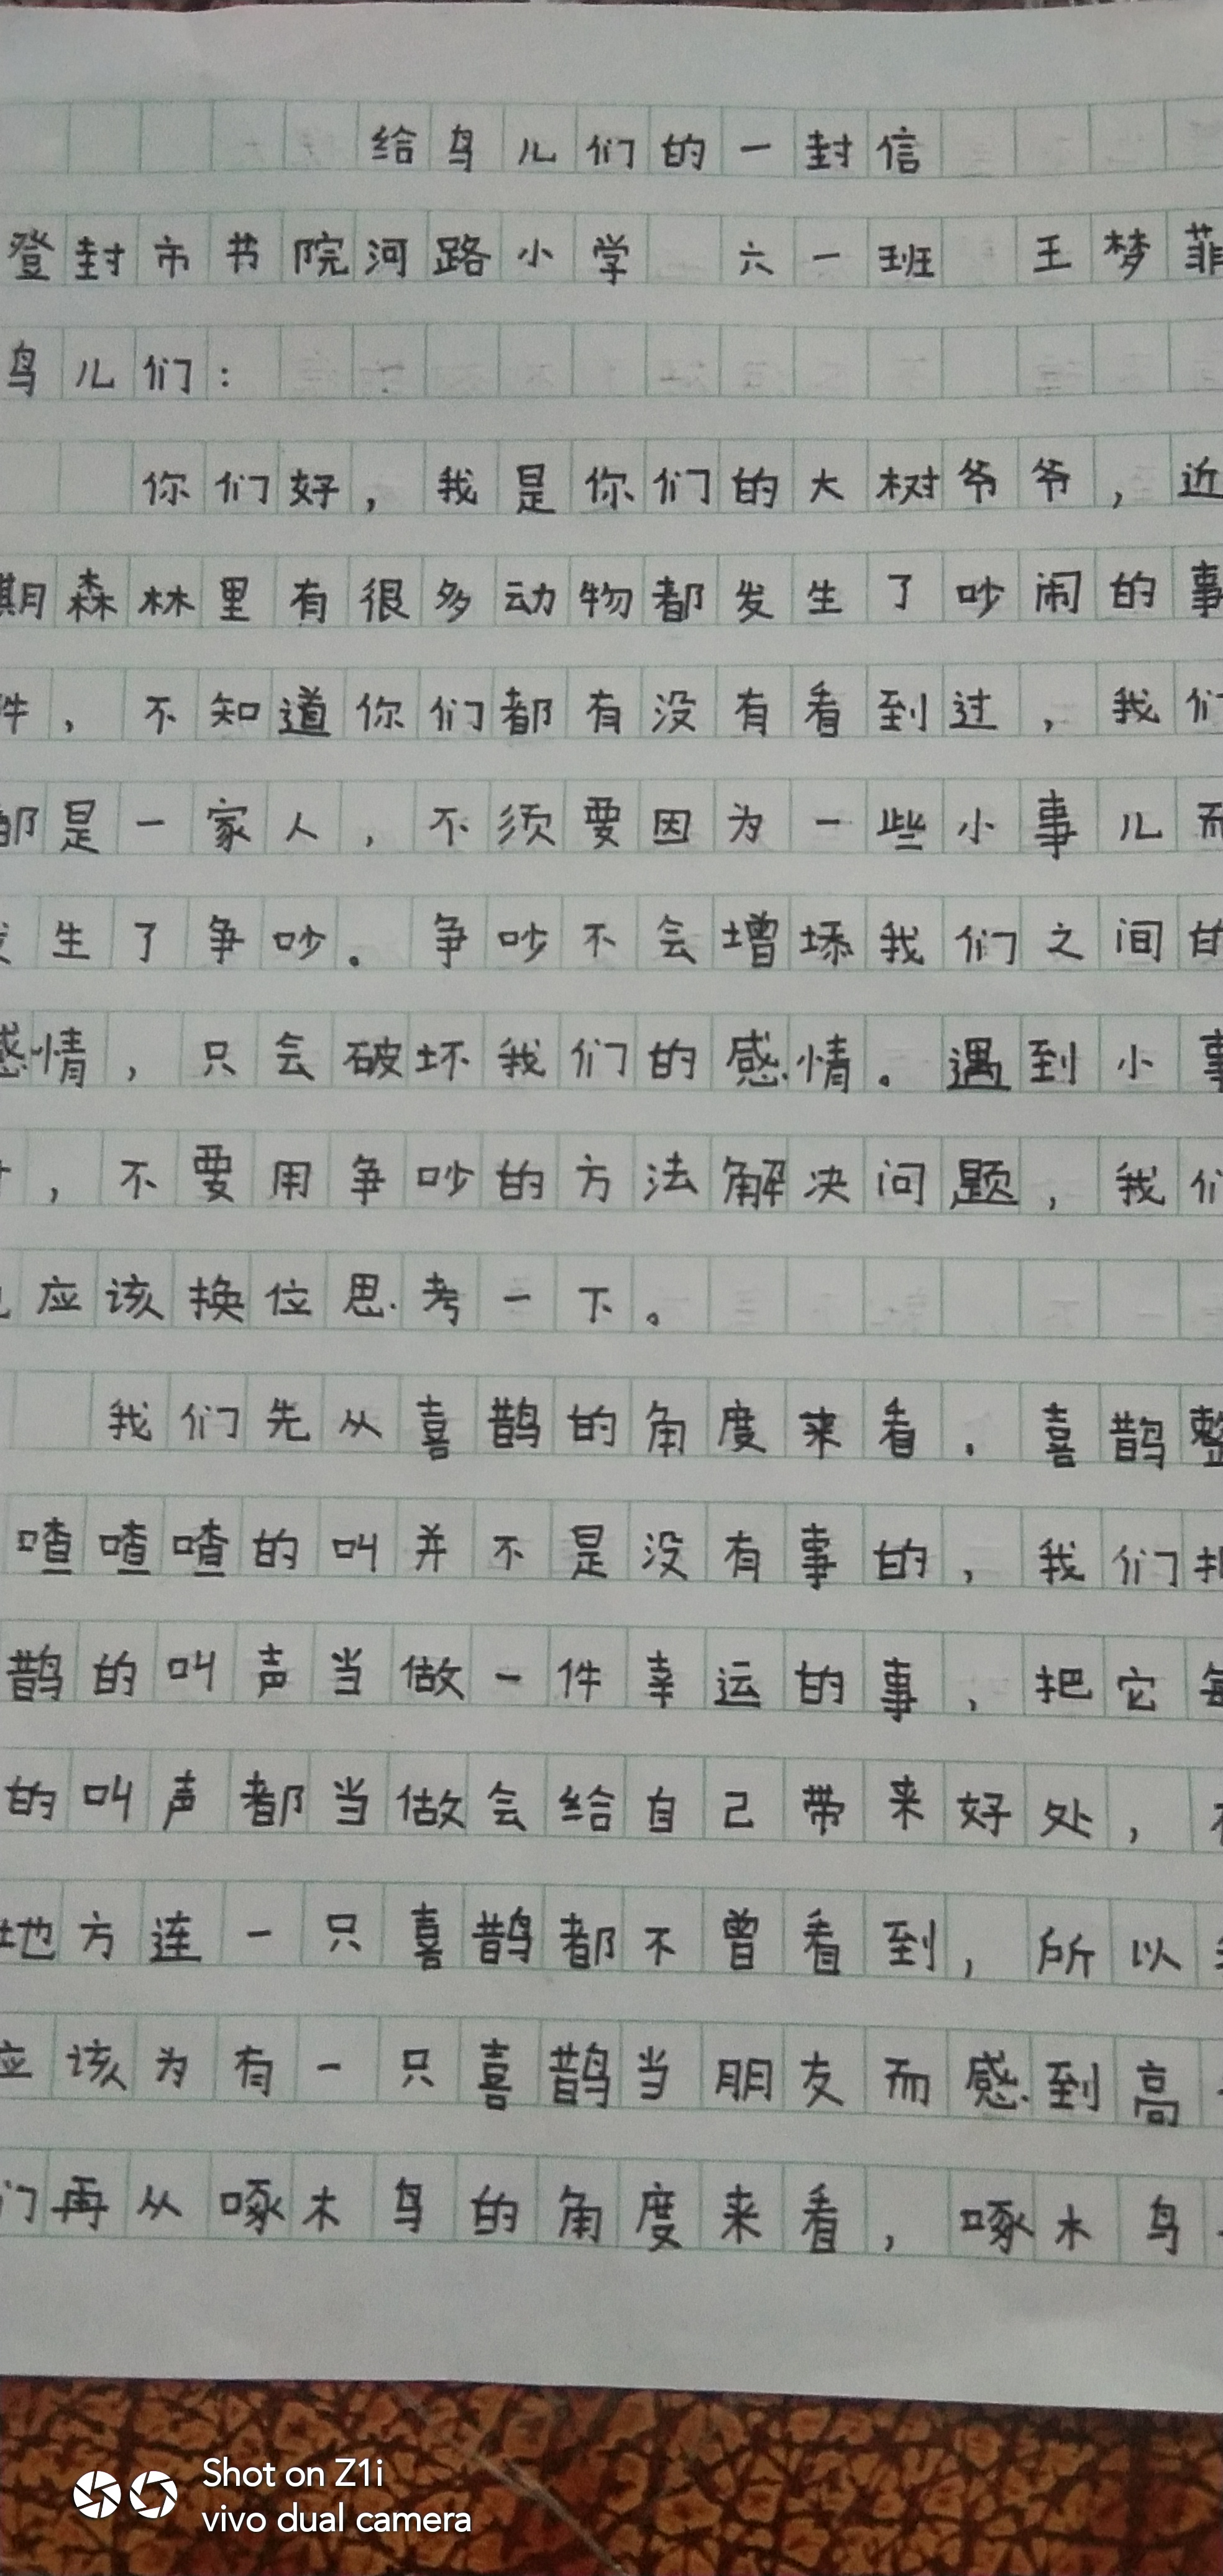 给鸟儿们的一封信
登封市书院河路小学 六一班 王梦菲
鸟儿们：
你们好，我是你们的大树爷爷，近
期森林里有很多动物都发生了吵闹的事
件，不知道你们都有没有看到过，我们
都是一家人，不须要因为一些小事儿而
生了争吵。争吵不会增添我们之间的
感情，只会破坏我们的感情。遇到小事
，不要用争吵的方法解决问题，我们
应该换位思考一下。
我们先从喜鹊的角度来看．喜鹊整
喳喳喳的叫并不是没有事的，我们把
鹊的叫声当做一件幸运的事，把它每
的叫声都当做会给自己带来好处，
地方连一只喜鹊都不曾看到，所以
应该为有一只喜鹊当朋友而感到高
们再从啄木鸟的角度来看，啄木鸟
Shot on Z1i
vivo dual camera